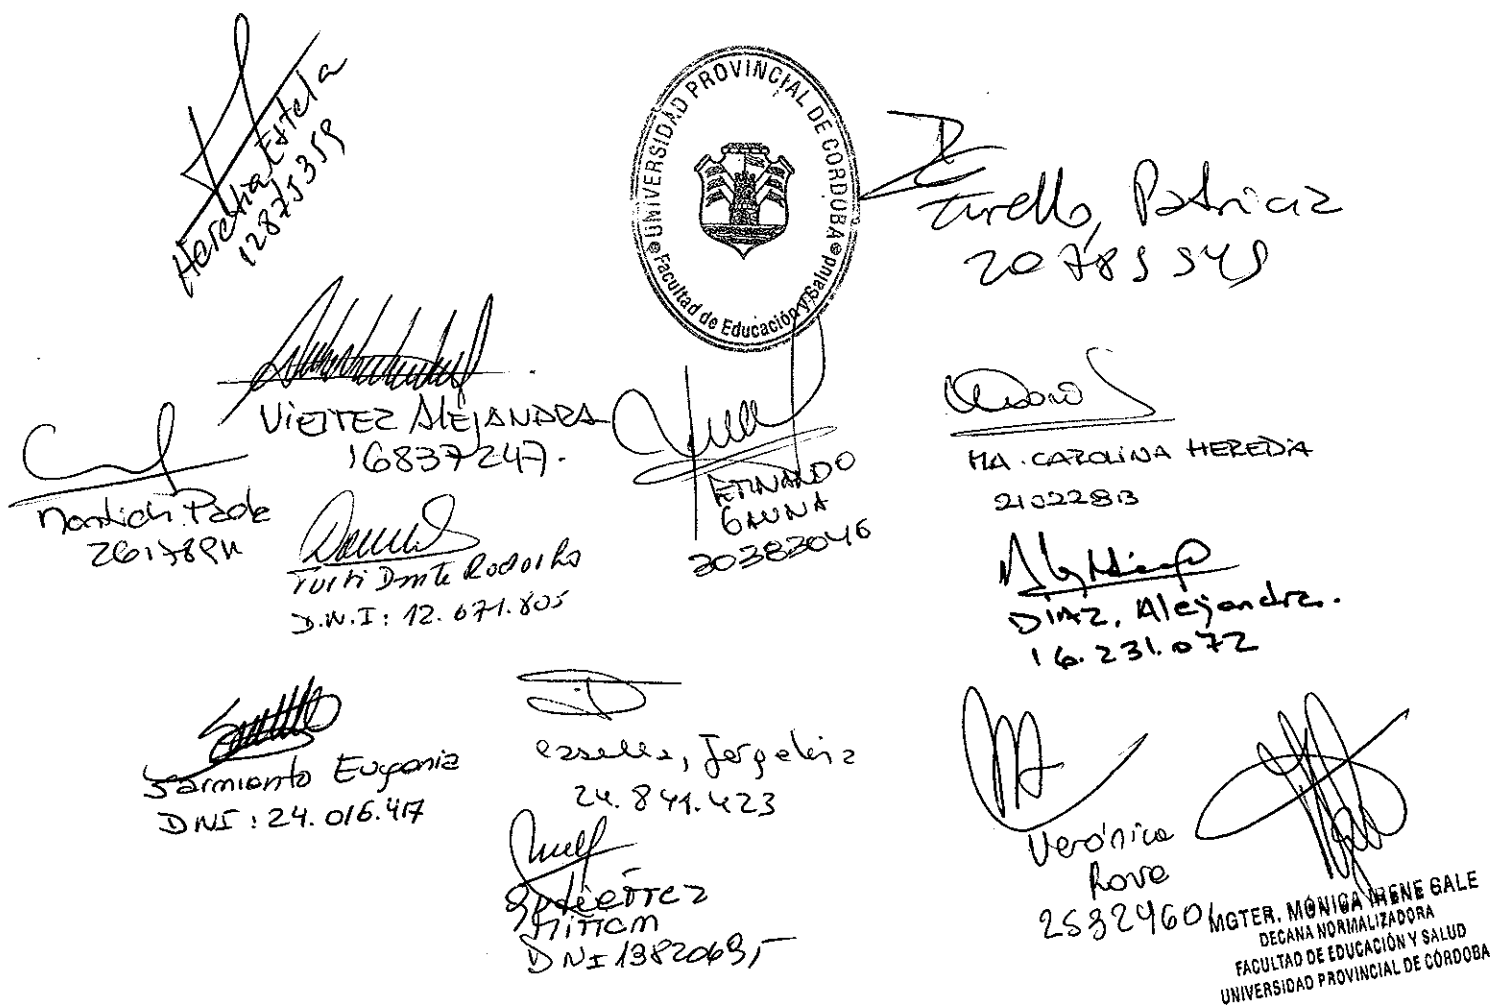 Heredia, Estela
12875359
UNIVERSIDAD PROVINCIAL DE CORDOBA
Facultad de Educación y Salud
Turello, Patricia
20785545
VIEITEZ ALEJANDRA
16837247.
Paola
Turri Dante Rodolfo
D.N.I: 12.671.805
FERNANDO
GAUNA
20383046
MA. CAROLINA HEREDIA
21022813
DIAZ, Alejandra.
16.231.072
Sarmiento Eugenia
DNI: 24.016.417
Casella, Jorgelina
24.841.423
Gutierrez
Miriam
DNI 13820695
Verónica
Rove
25532460
MGTER. MÓNICA IRENE GALE
DECANA NORMALIZADORA
FACULTAD DE EDUCACIÓN Y SALUD
UNIVERSIDAD PROVINCIAL DE CÓRDOBA